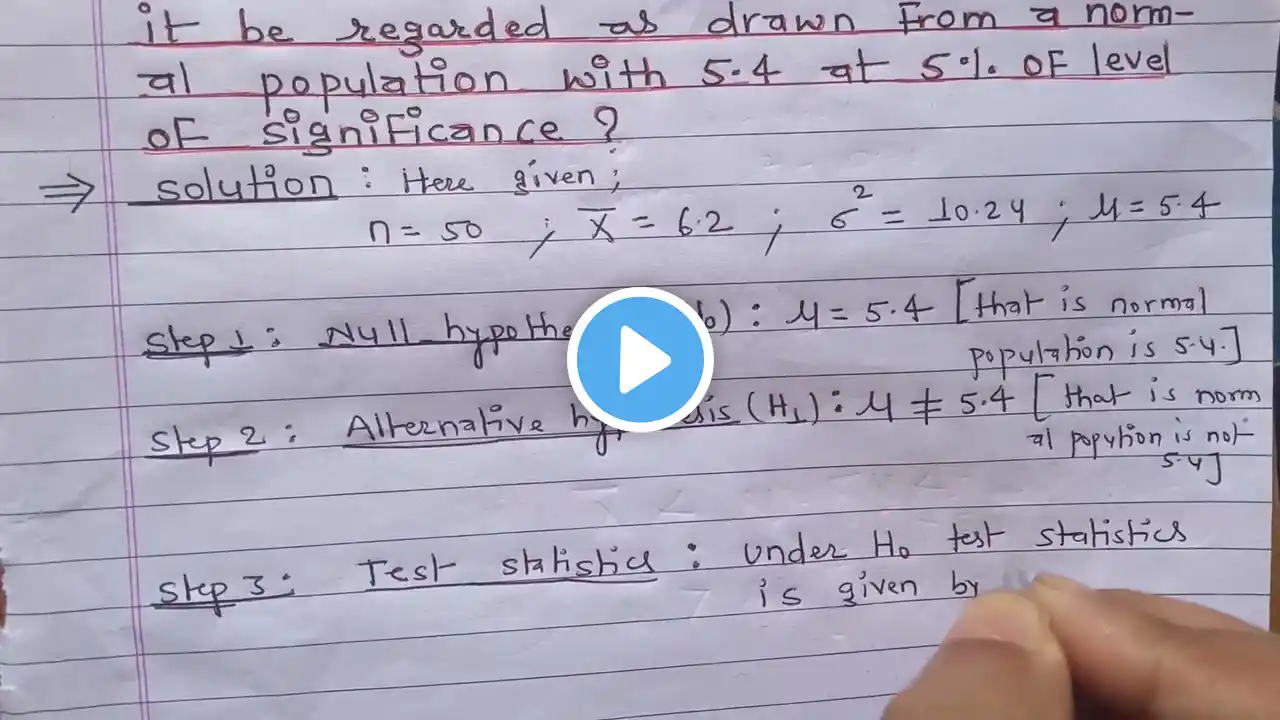 it be regarded as drawn From a norm-
al population with 5.4 at 5% OF level
OF significance ?
⇒ solution : Here given ;
n = 50 ; x̄ = 6.2 ; σ² = 10.24 ; μ = 5.4
Step 1 : Null : μ = 5.4 [that is normal
population is 5.4.]
Step 2 : Alternative (H₁) : μ ≠ 5.4 [that is norm
al popution is not
5.4]
Step 3 : Test statistics : under H₀ test statistics
is given by